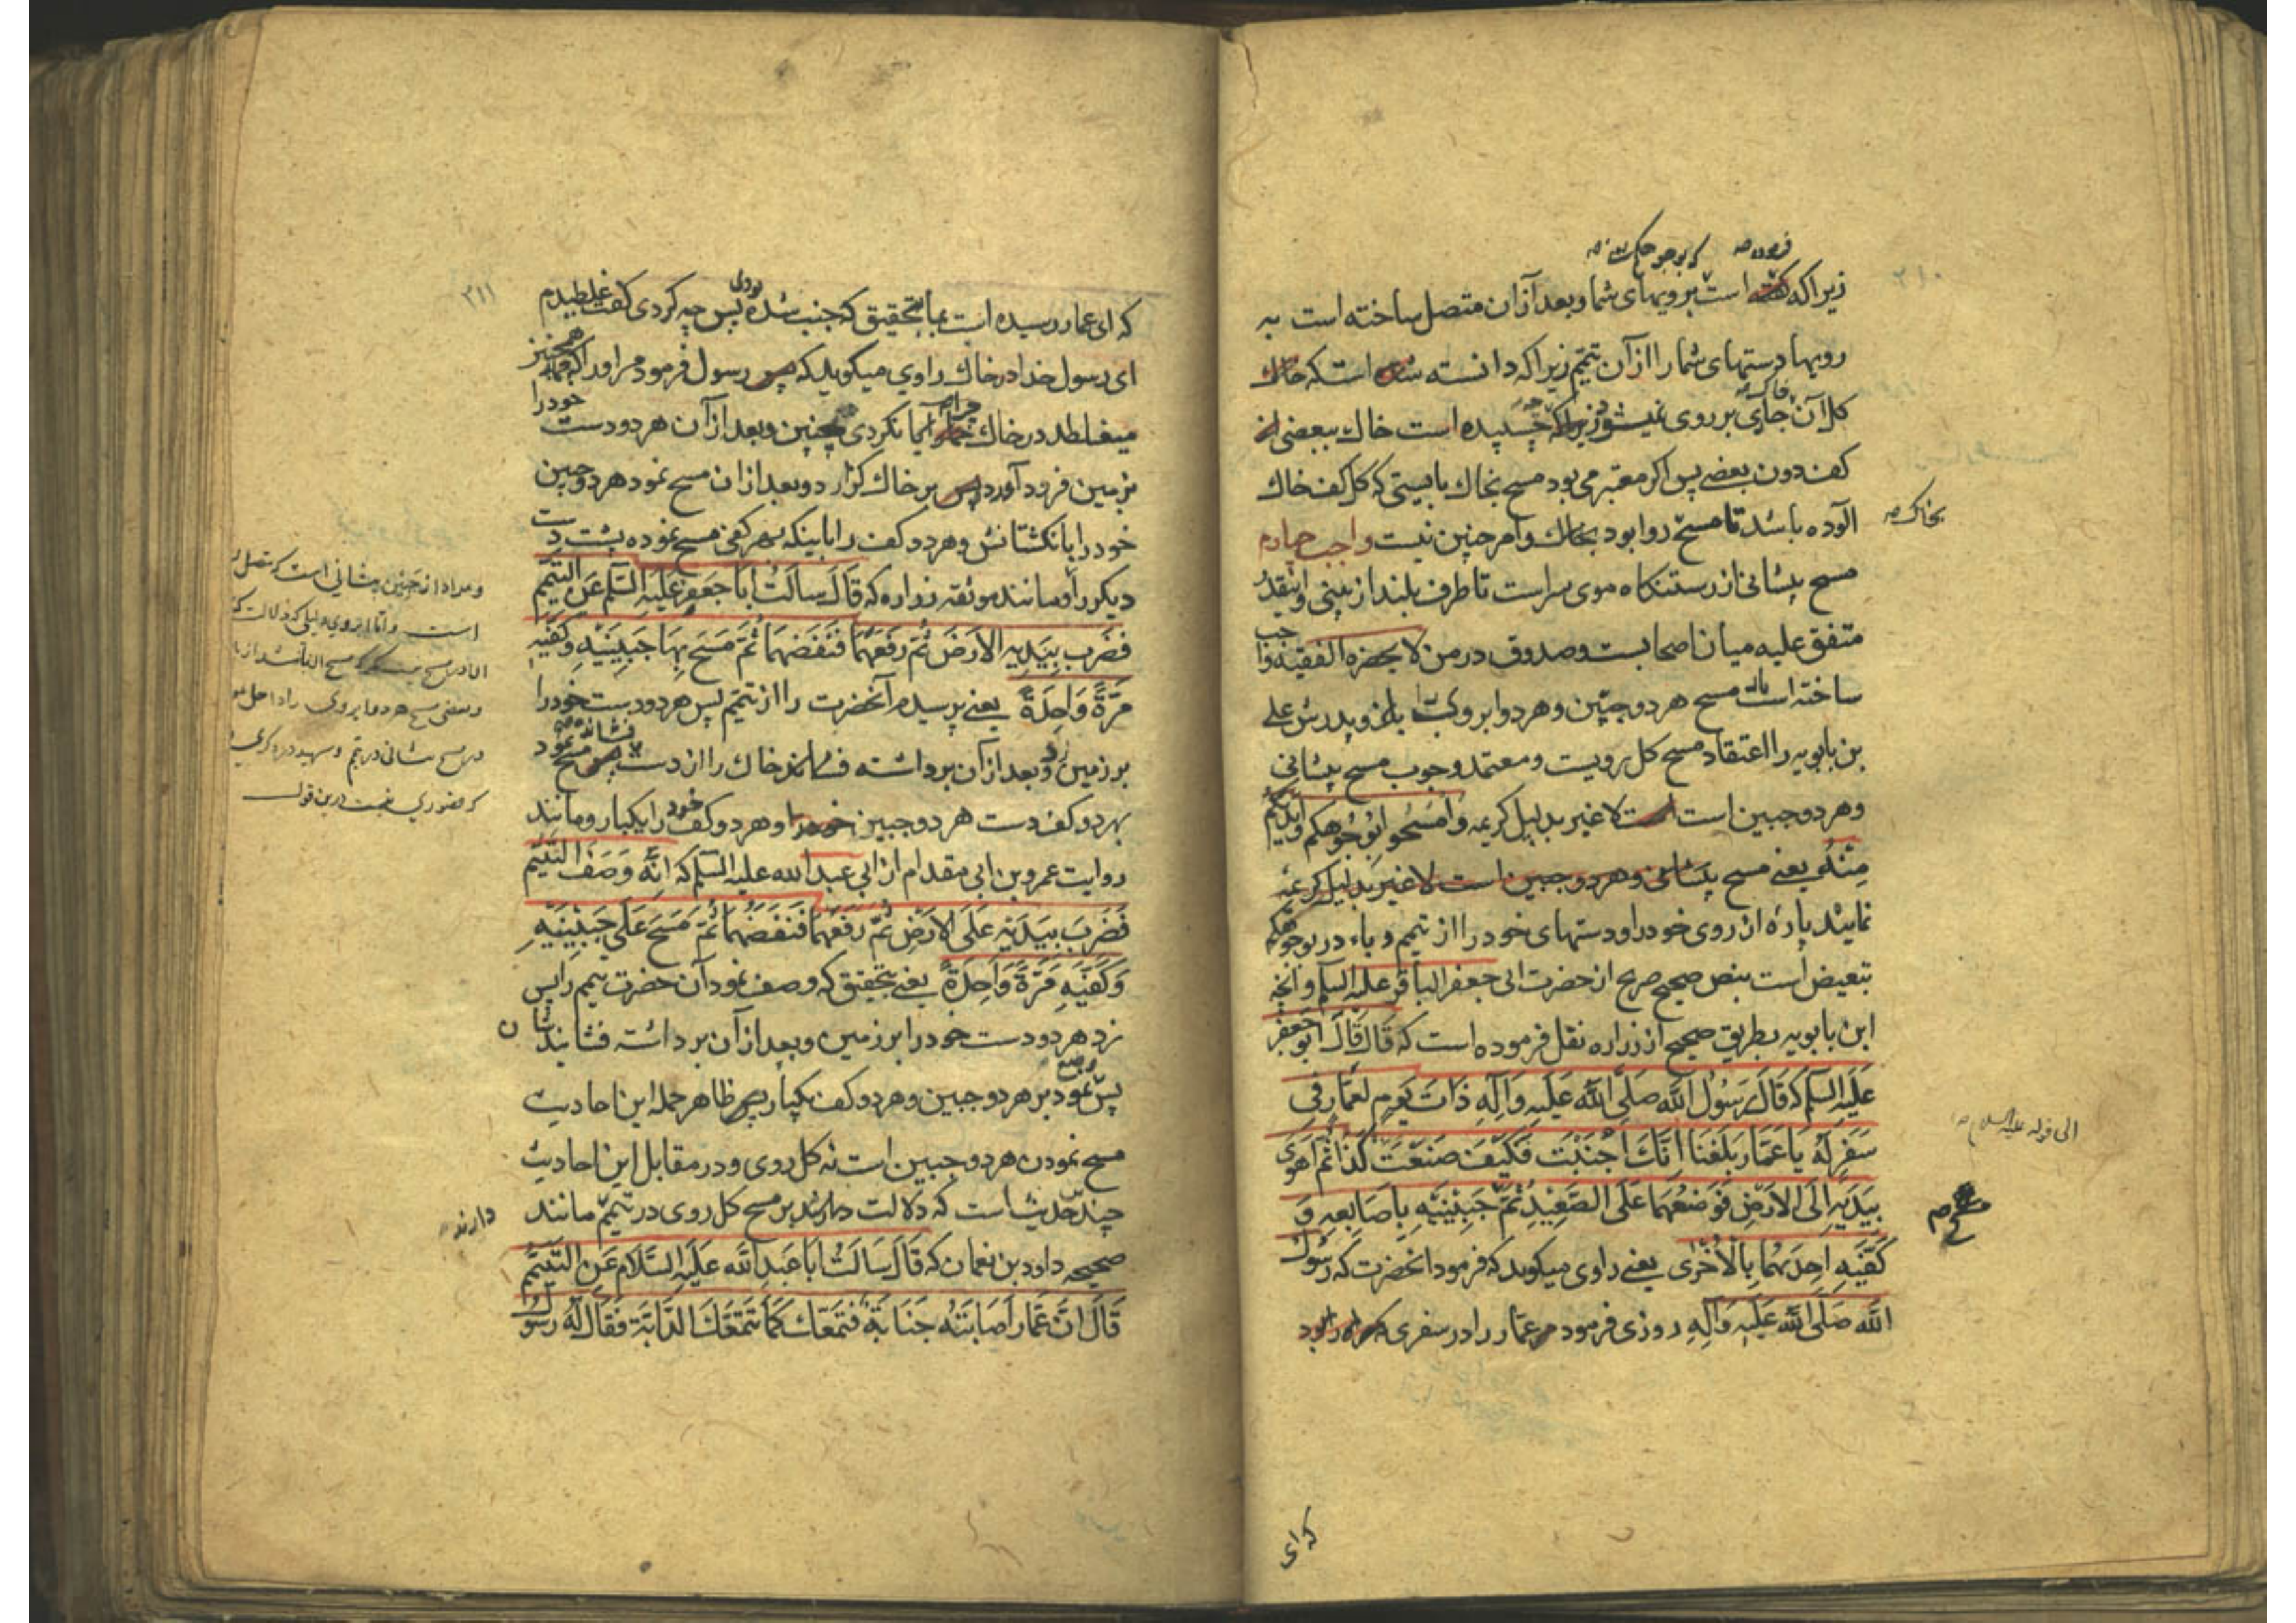 ۲۱۰
فرموده
زیرا که گفته است برویهای شما و بعد از آن متصل ساخته است به
رویها دستهای شما را از آن تیمّم زیرا که دانسته شده است که خاک
کل آن جای بر روی نمیشود زیرا که چسپیده است خاک ببعضی از
کف دون بعضی پس اگر معتبر می بود مسح بخاک بایستی که کل کف خاک
بخاک
آلوده باشد تا مسح روا بود بخاک و امر چنین نیست واجب چهارم
مسح پیشانی از رستنگاه موی سر است تا طرف بلند از بینی و اینقدر
متفق علیه میان اصحابست و صدوق در من لا یحضره الفقیه واجب
ساخته است مسح هر دو جبین و هر دو ابرو و پدرش علی
بن بابویه را اعتقاد مسح کل رویست و معتمد وجوب مسح پیشانی
وهر دو جبین است لا غیر بدلیل کریمه وَامْسَحُوا بِوُجُوهِكُم وَاَیْدِیکُمْ
مِنْهُ یعنی مسح پیشانی و هر دو جبین است لا غیر بدلیل کریمه
نمایند پارهٔ از روی خود را و دستهای خود را از تیمم و باء در بوجوهکم
تبعیض است بنص صحیح صریح از حضرت ابی جعفر الباقر علیه السلم و آنچه
ابن بابویه بطریق صحیح از زراره نقل فرموده است که قَالَ قَالَ اَبُو جَعْفَرٍ
عَلَیْهِ السَّلَم که قَالَ رَسُولُ اللَّهِ صَلَّی اللَّهُ عَلَیْهِ وَآلِهِ ذَاتَ یَوْمٍ لِعَمَّارٍ فِی
الی قوله علیه السلام
سَفَرٍ لَهُ یَا عَمَّارُ بَلَغَنَا اَنَّكَ اَجْنَبْتَ فَکَیْفَ صَنَعْتَ کَذَا ثُمَّ اَهْوَی
بِیَدَیْهِ اِلَی الاَرْضِ فَوَضَعَهُمَا عَلَی الصَّعِیْدِ ثُمَّ جَبِیْنَیْهِ بِاَصَابِعِهِ وَ
مسح
کَفَّیْهِ اِحْدَیهُمَا بِالْاُخْرَی یعنی راوی میگوید که فرمود آنحضرت که رسول
اللَّه صَلَّی اللَّهُ عَلَیْهِ وَآلِهِ روزی فرمود مر عمّار را در سفری
که ای
۲۱۱
که ای عمار رسیده است بما بتحقیق که جنب شده بودی پس چه کردی گفت غلطیدم
ای رسول خدا در خاک راوی میگوید که رسول فرمود مر او را که همچنین
میغلطد در خاک آیا نکردی چنین و بعد از آن هر دو دست خود را
بزمین فرود آورد بر خاک گزارد و بعد از ان مسح نمود هر دو جبین
خود را بانگشتانش و هر دو کف را باینکه بهر کفی مسح نموده پشت دست
دیگر را و مانند موثقه زراره که قَالَ سَاَلْتُ اَبَا جَعْفَرٍ عَلَیْهِ السَّلَم عَنِ التَّیَمُّمِ
فَضَرَبَ بِیَدَیْهِ الاَرْضَ ثُمَّ رَفَعَهُمَا فَنَفَضَهُمَا ثُمَّ مَسَحَ بِهَا جَبِیْنَیْهِ وَکَفَّیْهِ
مَرَّةً وَاحِدَةً یعنی پرسیدم آنحضرت را از تیمّم پس هر دو دست خود را
بر زمین زد و بعد از آن برداشته خاک را از دست مسح نمود
بهر دو کف دست هر دو جبین خود را و هر دو کف خود را یکبار و مانند
روایت عمرو بن ابی مقدام از ابی عبد الله علیه السلم که اَنَّهُ وَصَفَ التَّیَمُّمَ
فَضَرَبَ بِیَدَیْهِ عَلَی الاَرْضِ ثُمَّ رَفَعَهُمَا فَنَفَضَهُمَا ثُمَّ مَسَحَ عَلَی جَبِیْنَیْهِ
وَکَفَّیْهِ مَرَّةً وَاحِدَةً یعنی بتحقیق که وصف نمود آن حضرت تیمم را پس
زد هر دو دست خود را بر زمین و بعد از آن برداشته فشاند شان
پس مسح نمود بر هر دو جبین و هر دو کف یکبار ظاهر جمله این احادیث
مسح نمودن هر دو جبین است نه کل روی و در مقابل این احادیث
چند حدیث است که دلالت دارند بر مسح کل روی در تیمّم مانند
دارند
صحیحه داود بن نعمان که قَالَ سَاَلْتُ اَبَا عَبْدِ اللَّه عَلَیْهِ السَّلَام عَنِ التَّیَمُّمِ
قَالَ اِنَّ عَمَّاراً اَصَابَتْهُ جَنَابَةٌ فَتَمَعَّكَ کَمَا تَتَمَعَّكُ الدَّابَةُ فَقَالَ لَهُ رَسُولُ
و مراد از جبین پیشانی است که متصل
است و اما از روی دلیلی که دلالت
و بعضی مسح هر دو ابروی را داخل
در مسح پیشانی در تیمم و شهید در ذکری